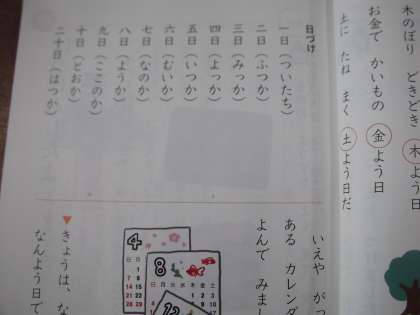 木のぼり どきどき
㊍よう日
お金で かいもの
㊎よう日
土に たね まく
㊏よう日だ
日づけ
一日（ついたち）
二日（ふつか）
三日（みっか）
四日（よっか）
五日（いつか）
六日（むいか）
七日（なのか）
八日（ようか）
九日（ここのか）
十日（とおか）
二十日（はつか）
いえや がっ
ある カレンダ
よんで みまし
4
8
12
日 月 火 水 木 金 土
▼きょうは、な
なんよう日で